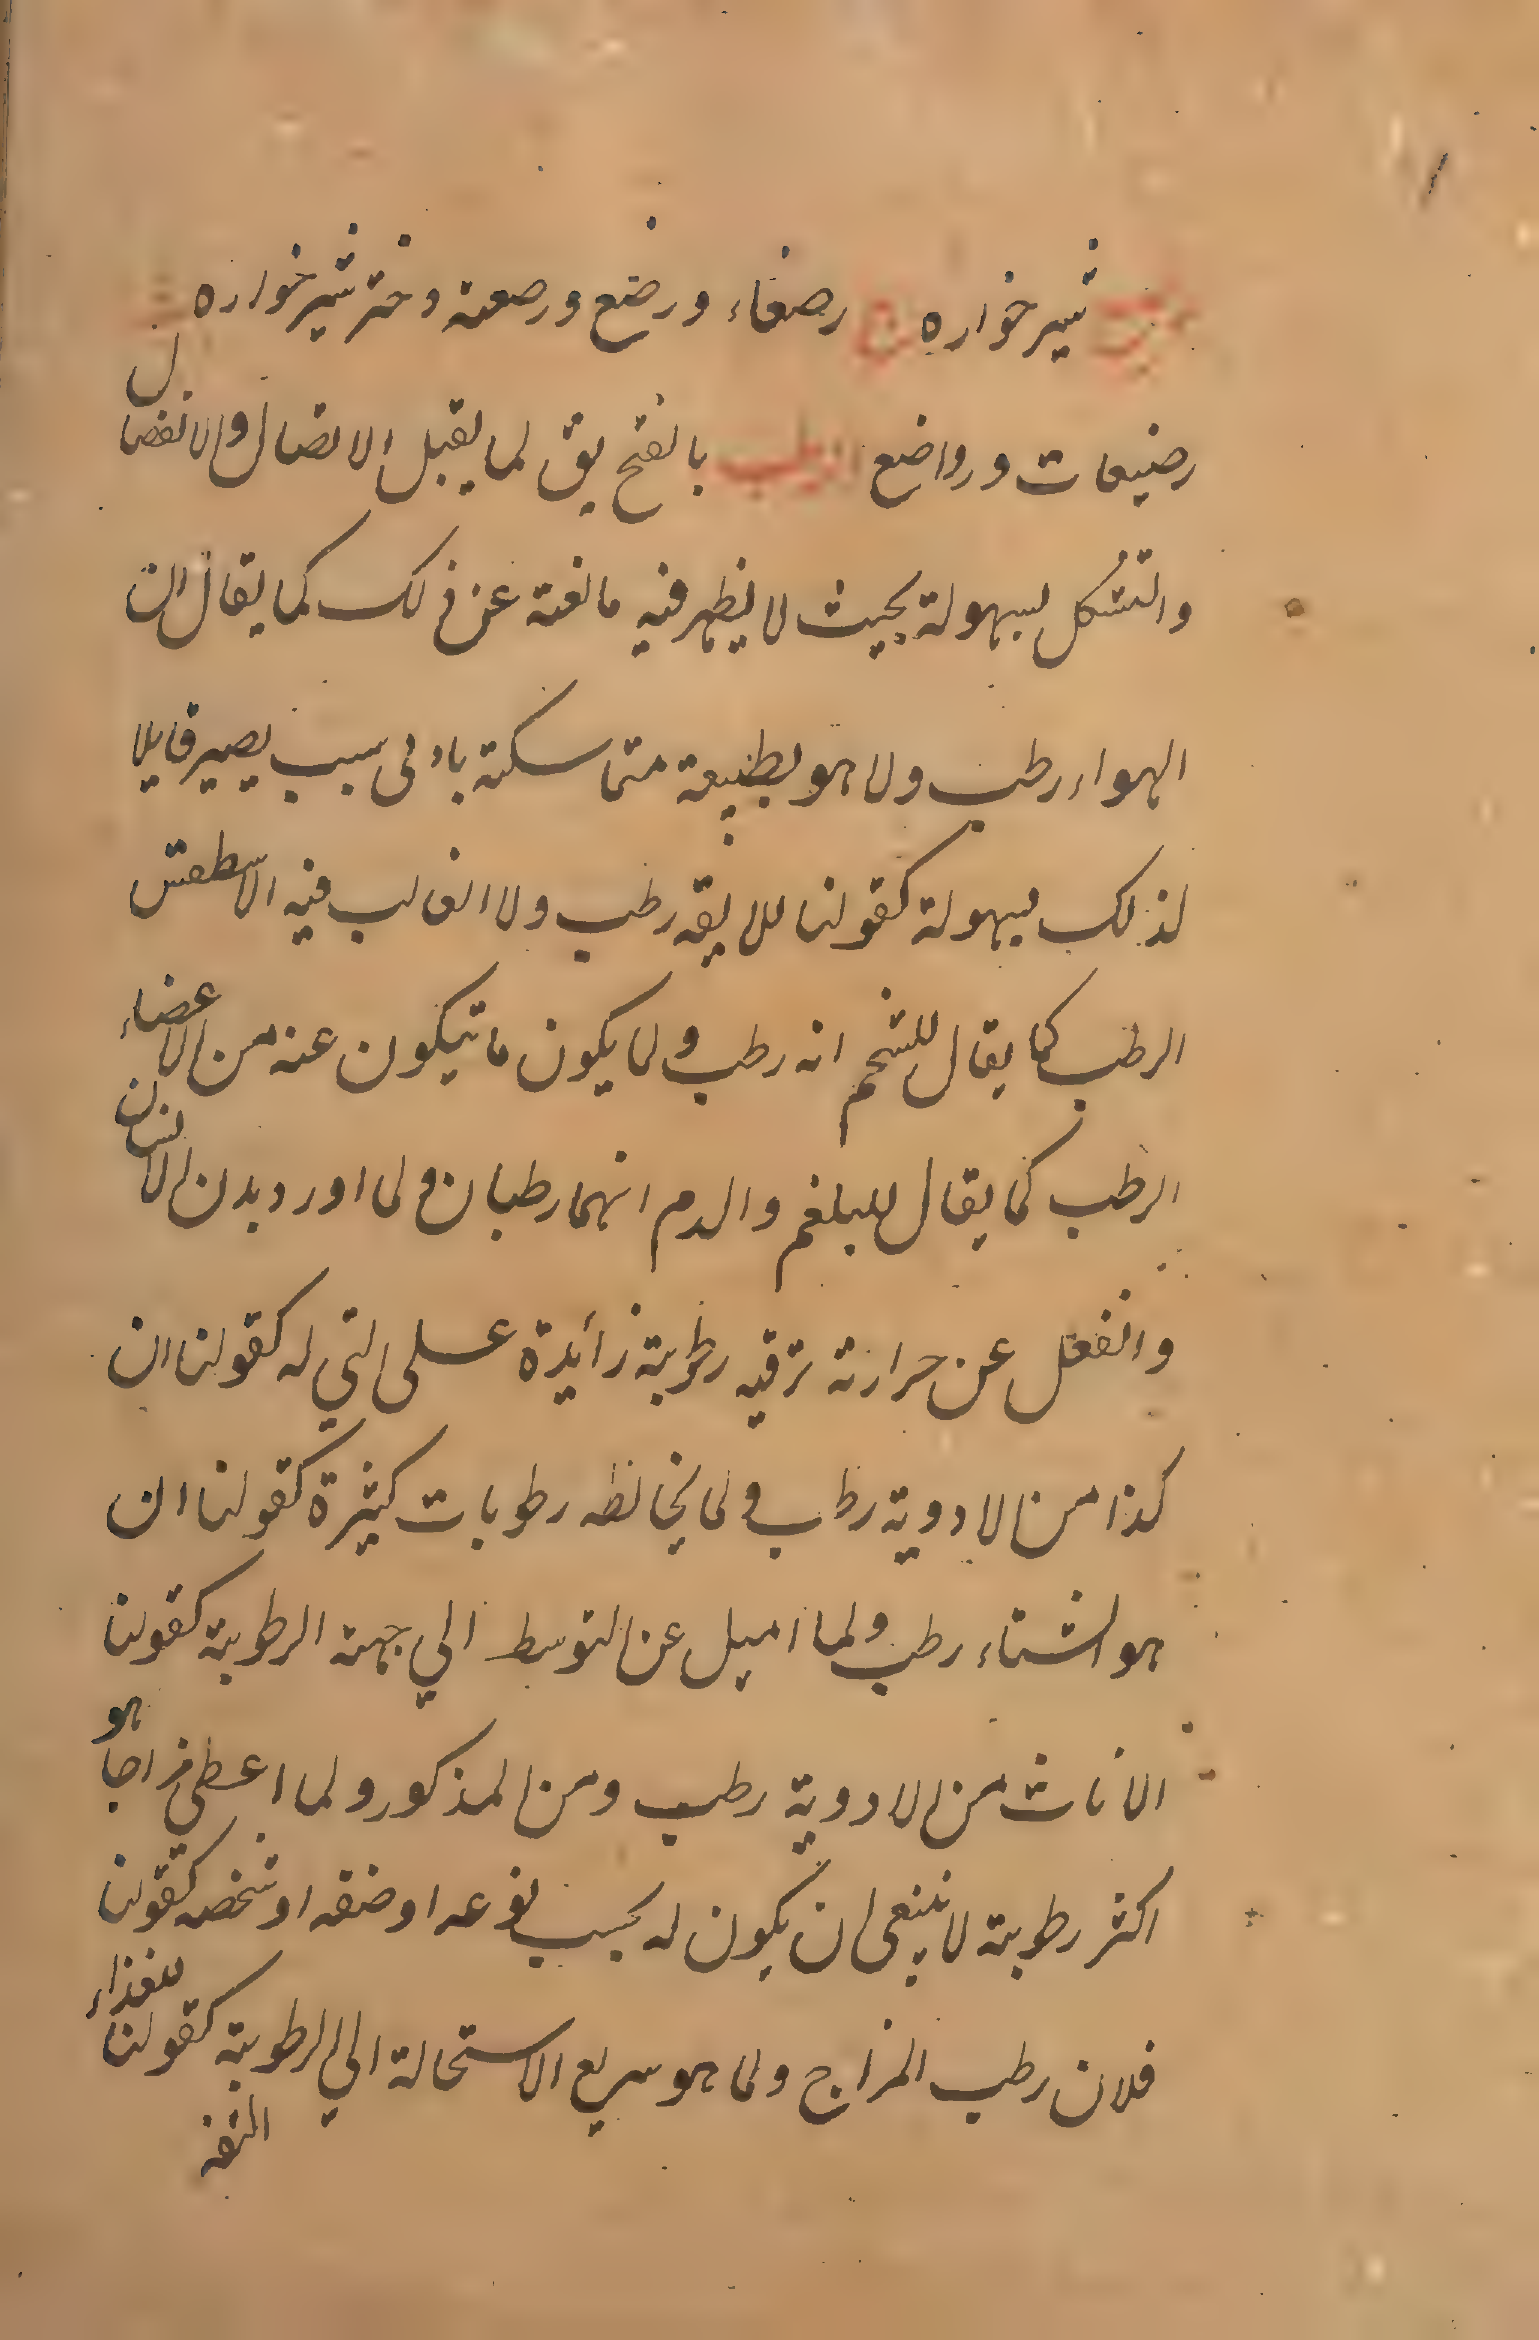 شیرخواره ج رضعاء و رضع و رضعة دختر شیرخواره
رضیعات و رواضع الرطب بالفتح یق لما یقبل الاتصال والانفصال
والتشکل بسهولة بحیث لا یظهر فیه مانعة عن ذلک کما یقال ان
الهواء رطب ولما هو بطبیعة متماسکة بادنی سبب یصیر قابلا
لذلک بسهولة کقولنا رطب ولما الغالب فیه الاسطقس
الرطب کما یقال للشحم انه رطب ولما یکون ما یتکون عنه من الاعضاء
الرطب کما یقال للبلغم والدم انهما رطبان ولما اورد بدن الانسان
وانفعل عن حرارته ترقیه رطوبة زایدة علی التی له کقولنا ان
کذا من الادویة رطب ولما یخالطه رطوبات کثیرة کقولنا ان
هو الشتاء رطب ولما امیل عن التوسط الی جهة الرطوبة کقولنا
الاناث من الادویة رطب ومن المذکور ولما اعطی مزاجا هو
اکثر رطوبة لا ینبغی ان یکون له بحسب نوعه او صنفه او شخصه کقولنا
فلان رطب المزاج ولما هو سریع الاستحالة الی الرطوبة کقولنا للغذاء